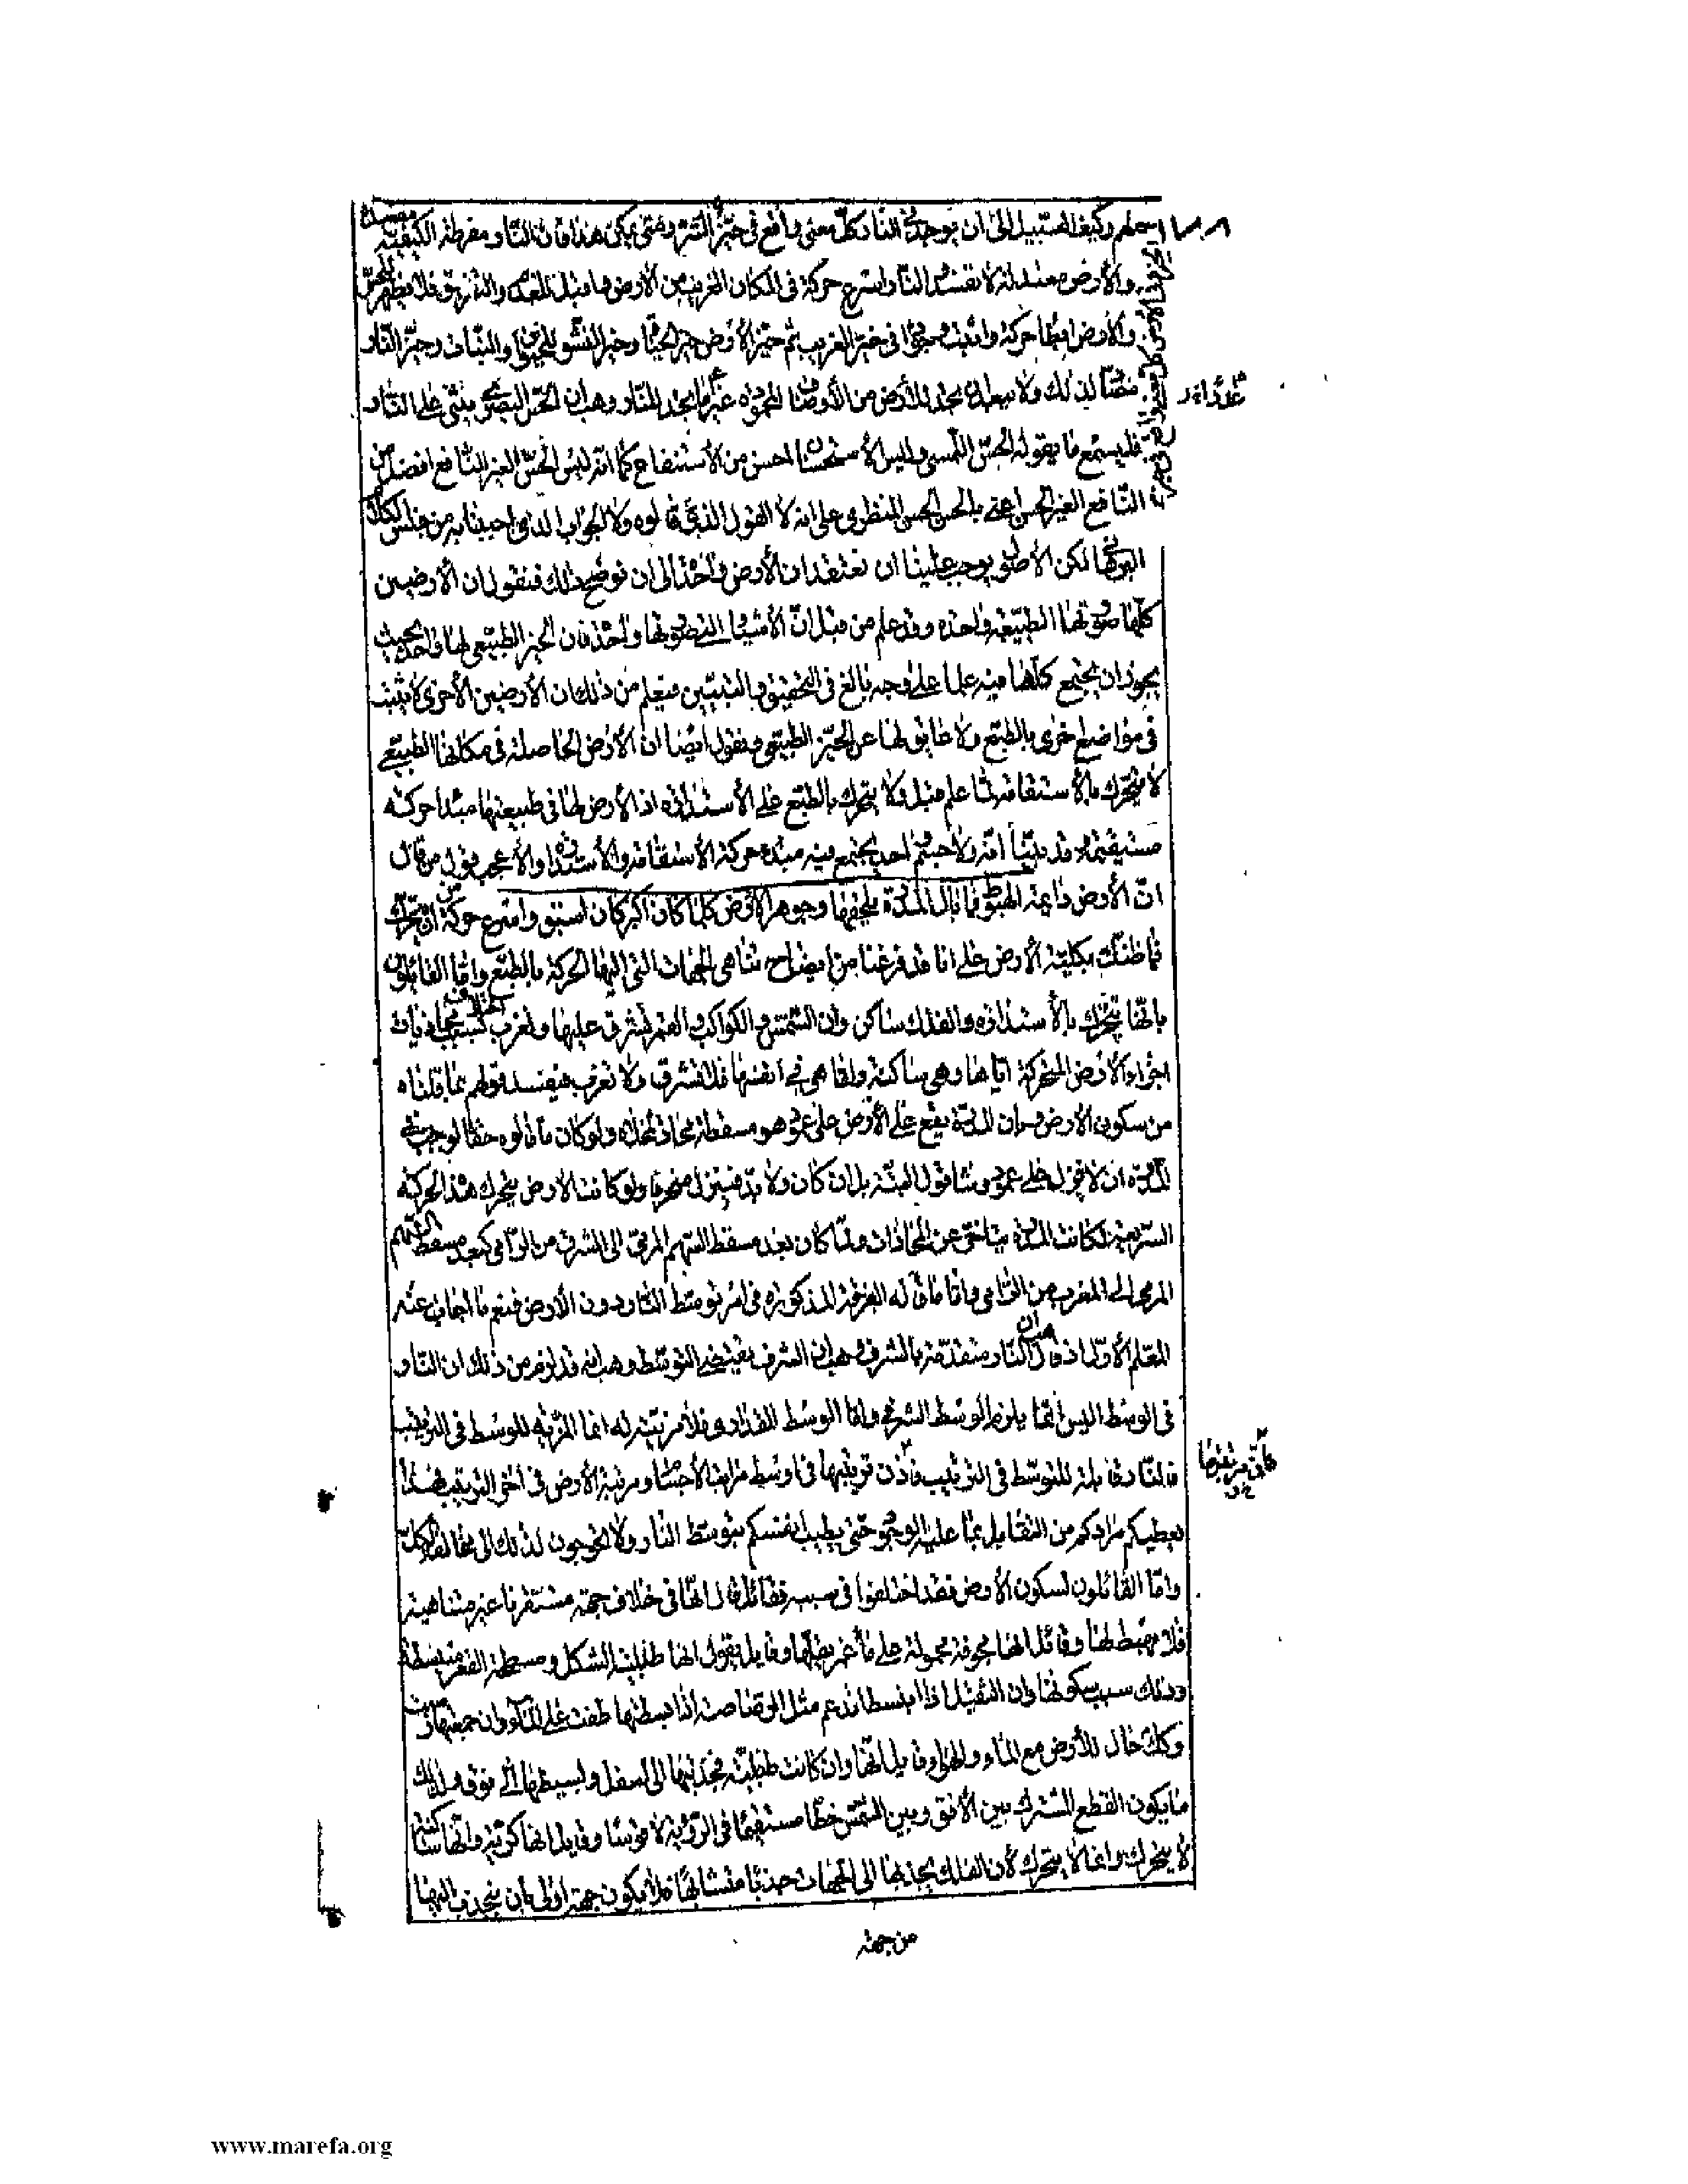 وكيف السبيل الى ان يوجد فى النار كل معنى واقع فى حيز الشر ومتى يمكن هذا فان النار مفرطة الكيفية مفسدة
والأرض معتدلة لا تفسد النار اسرع حركة فى المكان الغريب من الأرض
والأرض ابطأ حركة واثبت وجودا فى حيز الغريب ثم حيز الأرض حيز الحيوة وحيز النشو للحيوان والنبات وحيز النار
مضاد لذلك ولا يبعد ان نجد للأرض من الأوصاف المحمودة غير ما نجد للنار وهب ان الحس البصرى يثنى على النار
فليسمع ما يقوله الحس اللمسى وليس الاستحسان احسن من الاستنفاع كما انه ليس الحسن الغير النافع افضل من
النافع الغير الحسن اعنى بالحسن الحسن المنظرى على انه لا القول الذى قالوه ولا الجواب الذى اجبنا به من جنس الكلام
البرهانى لكن الأصول يوجب علينا ان نعتقد ان الأرض واحدة الى ان نوضح ذلك فنقول ان الأرضين
كلها صورتها الطبيعية واحدة وقد علم من قبل ان الأشياء التى صورتها واحدة فان الحيز الطبيعى لها واحد بحيث
يجوز ان يجتمع كلها فيه علما على وجه بالغ فى التحقيق والتبيين فيعلم من ذلك ان الأرضين الأخرى لا يثبت
فى مواضع اخرى بالطبع ولا عايق لها عن الحيز الطبيعى ونقول ايضا ان الأرض الحاصلة فى مكانها الطبيعى
لا يتحرك بالاستقامة لما علم قبل ولا يتحرك بالطبع على الاستدارة اذ الأرض لها فى طبيعتها مبدا حركة
مستقيمة وقد بينا انه ولا جسم واحد يجتمع فيه مبدء حركة الاستقامة والاستدارة والاعجب قول من قال
ان الأرض دايمة الهبوط فما بال المدرة يلحقها وجوهر الأرض كلما كان اكبر كان اسبق واسرع حركة ان يتحرك
فما ظنك بكلية الأرض على انا قد فرغنا من ايضاح تناهى الجهات التى اليها الحركة بالطبع واما القائلون
بانها يتحرك بالاستدارة والفلك ساكن وان الشمس والكواكب والقمر تشرق عليها وتغرب بسبب اختلاف محاذيات
اجزاء الأرض المتحركة اياها وهى ساكنة واما هى فى انفسها فلا تشرق ولا تغرب فيفسد قولهم بما قلناه
من سكون الأرض وبان المدرة يقع على الأرض على عمود هو مسقطه محاذ لمحاذاة ولو كان ما قالوه حقا لوجب فى
المدرة ان لا تنزل على عمود وشاقول البتة بل ان كان ولا بد فينزل منحرفا ولو كانت الأرض يتحرك هذه الحركة
السريعة لكانت المدرة يتاخر عن المحاذاة ولما كان بعد مسقط السهم المرمى الى الشرق من الرامى كبعد مسقط السهم
المرمى الى المغرب من الرامى واما ما قاله الفرقة المذكورة فى امر توسط النار دون الأرض فنعم ما اجاب عنه
المعلم الأول اذ قال هب ان النار متقدمة بالشرف وهب ان الشرف يقتضى التوسط وهب انه قد لزم من ذلك ان النار
فى الوسط اليس انما يلزم الوسط الشرفى واما الوسط المقدارى فلا مرتبة له انما المرتبة للوسط فى الترتيب
فالنار قابلة للتوسط فى الترتيب فاذن ترتيبها فى اوسط مراتب الأجسام ومرتبة الأرض فى آخر الترتيب فهذا
يعطيكم مرادكم من التفاضل بما عليه الوجود حتى يطيب انفسكم بتوسط النار ولا تحوجون لذلك الى مخالفة الكل
واما القائلون بسكون الأرض فقد اختلفوا فى سببه فقائل قال انها فى خلاف جهة مستقرنا غير متناهية
فلا مهبط لها وقائل انها مجوفة محمولة على ماء غمر يقلها وقايل يقول انها طبلية الشكل ومسطحة القعر منبسطة
وذلك سبب سكونها وان الثقيل اذا انبسط اندعم مثل الرصاصة اذا بسطتها طفت على الماء وان جمعتها رسبت
وكذلك حال للأرض مع الماء والهواء وقايل انها وان كانت طبلية فحدبتها الى اسفل وبسيطها الى فوق ولذلك
ما يكون القطع المشترك بين الأفق وبين الشمس خطا مستقيما فى الرؤية لا قوسا وقايل انها كرية وانها ساكنة
لا يتحرك وانما لا يتحرك لأن الفلك يجذبها الى الجهات جذبا متشابها فلا يكون جهة اولى بان ينجذب اليها
من جهة